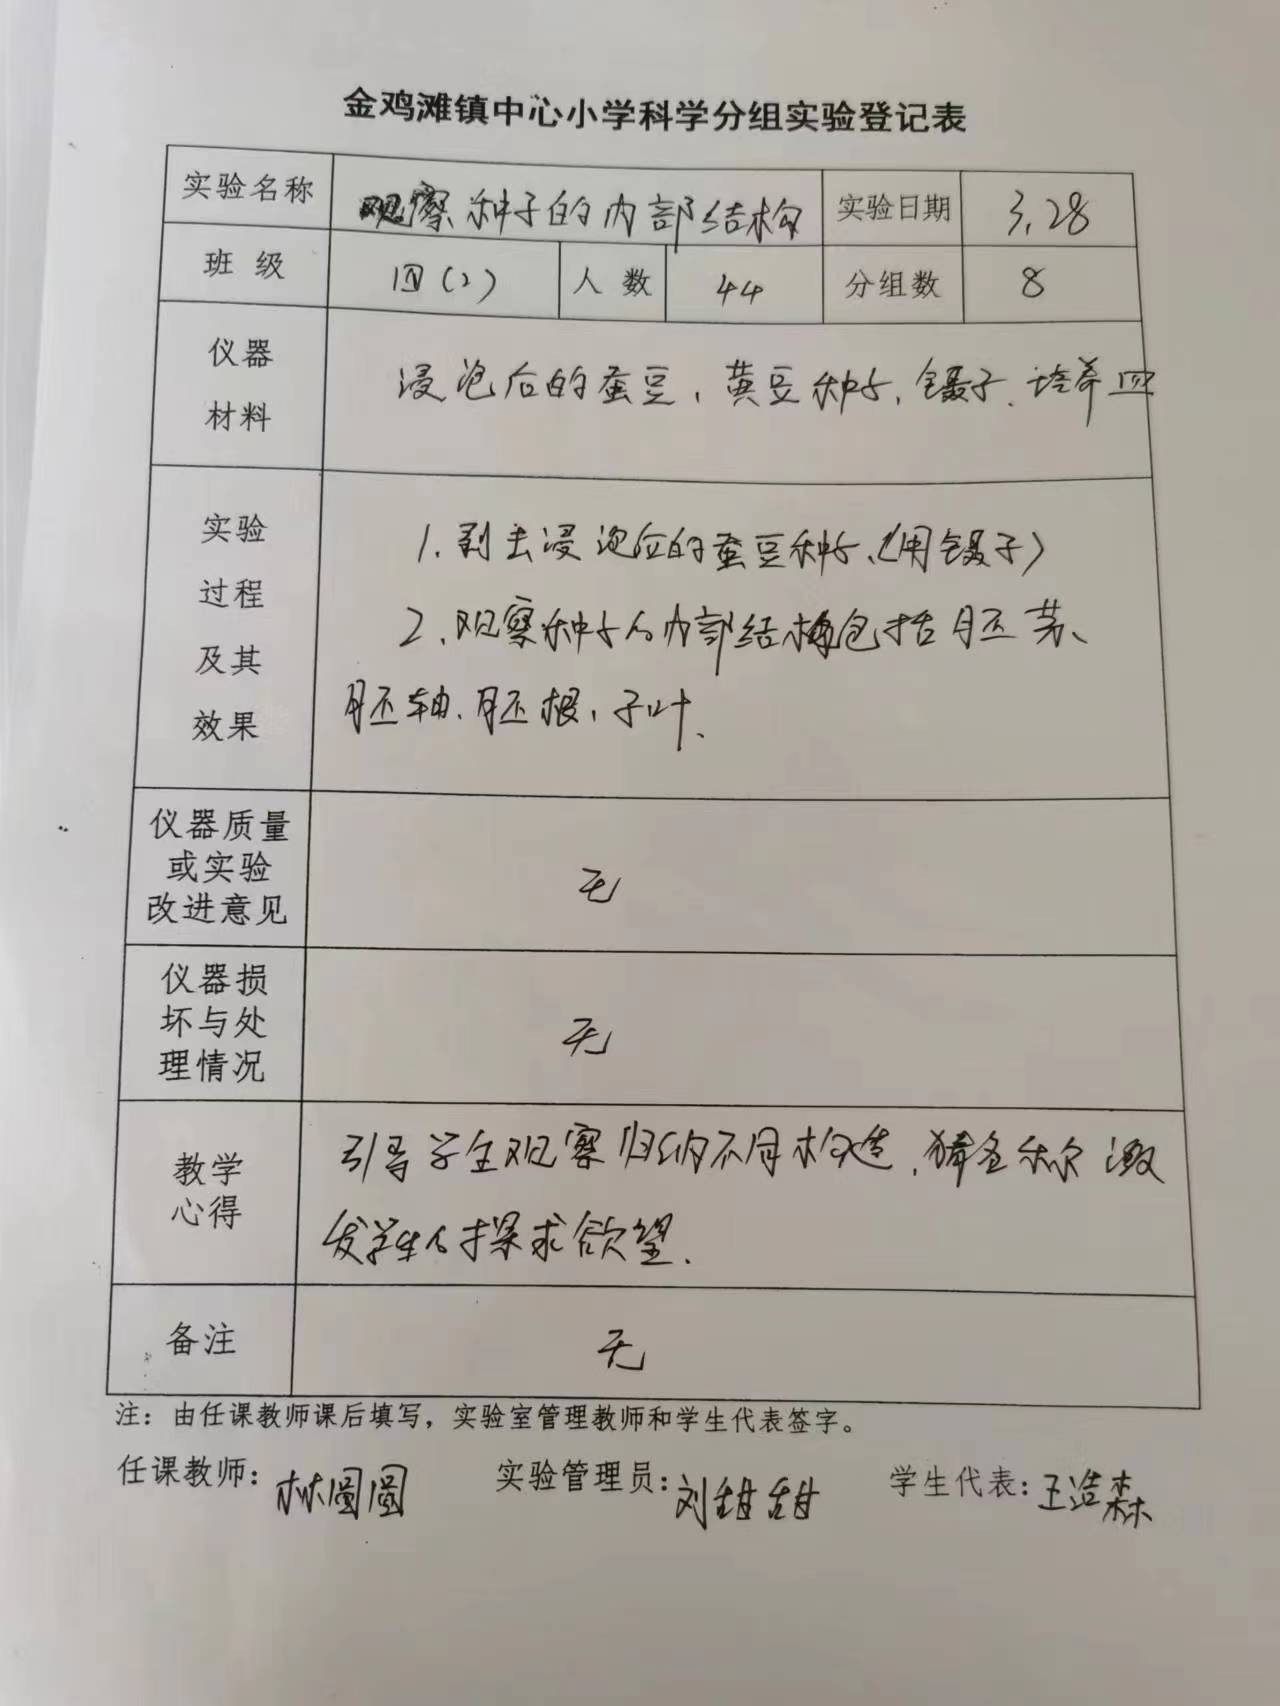 金鸡滩镇中心小学科学分组实验登记表
实验名称 观察种子的内部结构 实验日期 3.28
班 级 四(2) 人 数 44 分组数 8
仪器
材料
浸泡后的蚕豆,黄豆种子,镊子、培养皿
实验
过程
及其
效果
1.剥去浸泡后的蚕豆种子、(用镊子)
2.观察种子的内部结构包括胚芽、
胚轴、胚根、子叶、
仪器质量
或实验
改进意见
无
仪器损
坏与处
理情况
无
教学
心得
引导学生观察归纳不同构造,猜名称 激
发学生的探求欲望.
备注
无
注:由任课教师课后填写,实验室管理教师和学生代表签字。
任课教师:林圆圆 实验管理员:刘甜甜 学生代表:王浩森